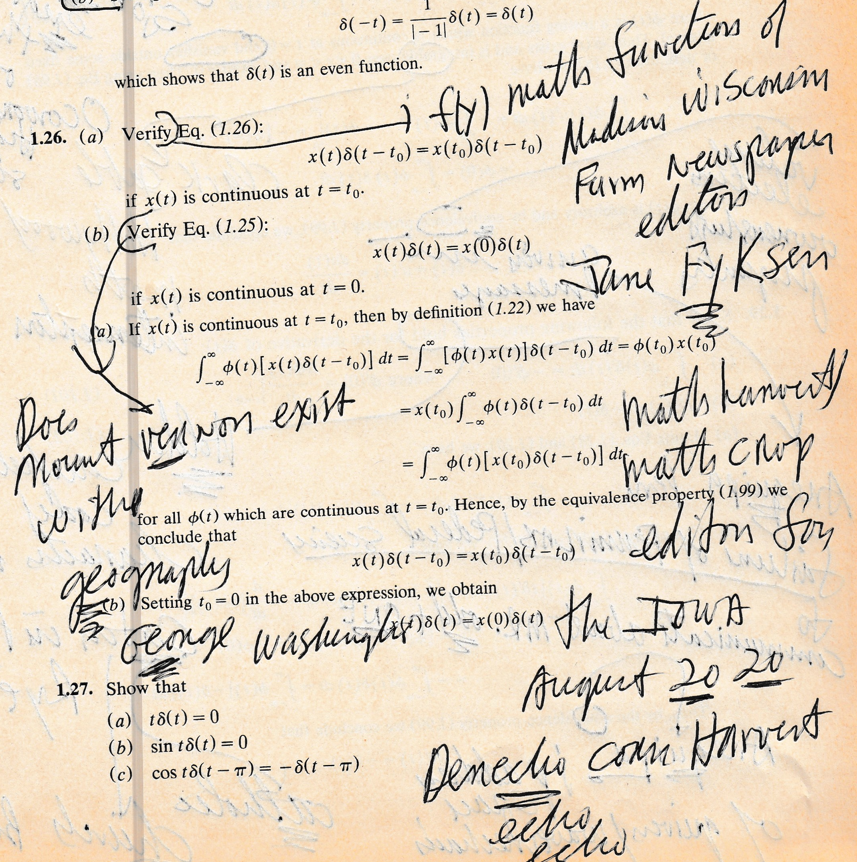 δ(−t) = 1/|−1| δ(t) = δ(t)
which shows that δ(t) is an even function.
f(y) math functions of
Madison Wisconsin
Farm newspaper
editors
Jane FyKsen
1.26. (a) Verify Eq. (1.26):
x(t)δ(t − t₀) = x(t₀)δ(t − t₀)
if x(t) is continuous at t = t₀.
(b) Verify Eq. (1.25):
x(t)δ(t) = x(0)δ(t)
if x(t) is continuous at t = 0.
(a) If x(t) is continuous at t = t₀, then by definition (1.22) we have
∫_{−∞}^{∞} φ(t)[x(t)δ(t − t₀)] dt = ∫_{−∞}^{∞} [φ(t)x(t)]δ(t − t₀) dt = φ(t₀)x(t₀)
= x(t₀) ∫_{−∞}^{∞} φ(t)δ(t − t₀) dt
= ∫_{−∞}^{∞} φ(t)[x(t₀)δ(t − t₀)] dt
Does
Mount vernon exist
with
geography
George Washington
math harvest/
math crop
editor for
the IOWA
August 20 20
for all φ(t) which are continuous at t = t₀. Hence, by the equivalence property (1.99) we
conclude that
x(t)δ(t − t₀) = x(t₀)δ(t − t₀)
(b) Setting t₀ = 0 in the above expression, we obtain
x(t)δ(t) = x(0)δ(t)
1.27. Show that
(a) tδ(t) = 0
(b) sin tδ(t) = 0
(c) cos tδ(t − π) = −δ(t − π)
Denecho corn Harvest
echo
echo